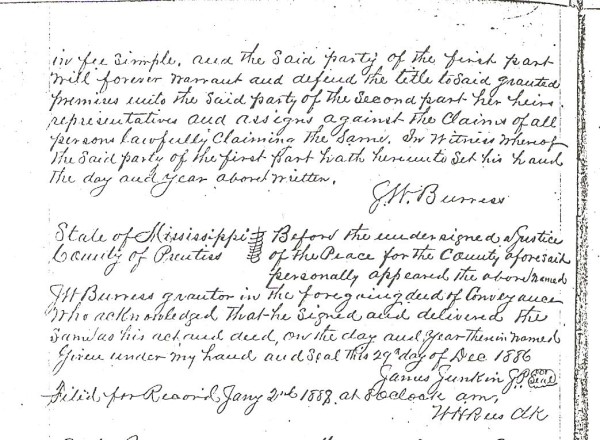 in fee simple. and the Said party of the first part
Will forever Warrant and defend the title to Said granted
premises unto the Said party of the Second part her heirs
representatives and assigns against the Claims of all
persons lawfully Claiming the Same. In Witness Whereof
the Said party of the first part hath hereunto Set his hand
the day and Year above Written.
J.W. Burress
State of Mississippi
County of Prentiss
Before the undersigned a Justice
of the Peace for the County aforesaid
personally appeared the above named
J W Burress grantor in the foregoing deed of Conveyance
Who acknowledged that he Signed and delivered the
Same as his act, and deed, on the day and Year therein named
Given under my hand and Seal this 29th day of Dec 1886
James Junkin J.P. Seal
Filed for Record Jany 2nd 188 at 8 Oclock am.
W H Rees Clk